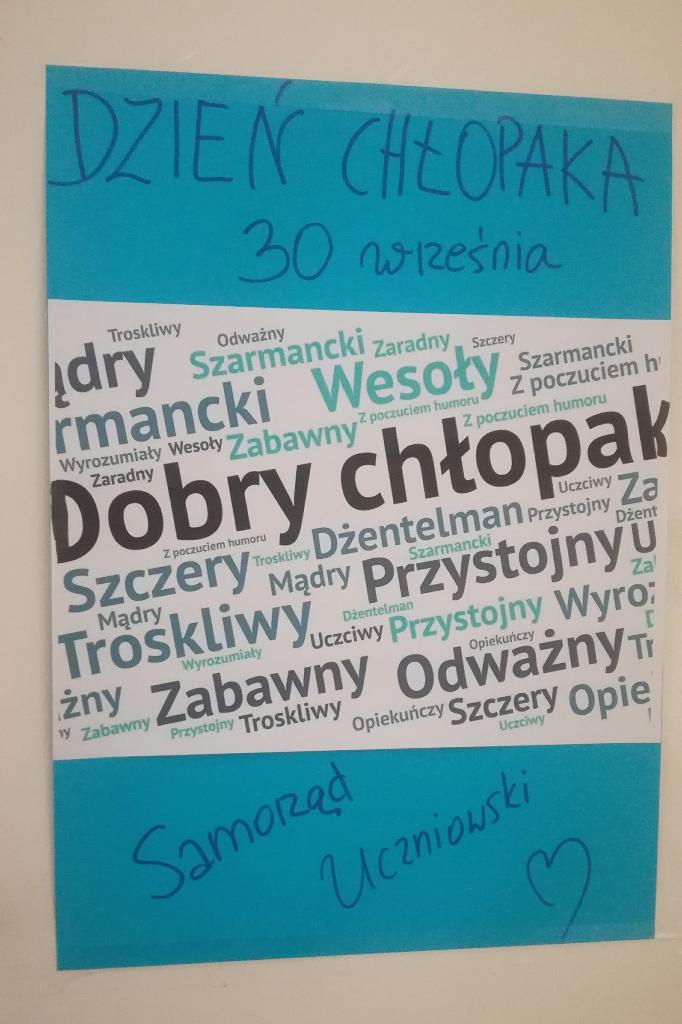 DZIEŃ CHŁOPAKA
30 września
Troskliwy Odważny Szarmancki Zaradny Szczery
ądry Wesoły Szarmancki
rmancki Z poczuciem humoru Z poczuciem hu
Wyrozumiały Wesoły Zabawny Z poczuciem humoru
Zaradny
Dobry chłopak
Z poczuciem humoru Troskliwy Dżentelman Przystojny Uczciwy Za
Szczery Mądry Szarmancki Przystojny U Dżent
Mądry Dżentelman Za
Troskliwy Uczciwy Przystojny Wyroz
Wyrozumiały Opiekuńczy
żny Zabawny Odważny Tr
ny Zabawny Przystojny Troskliwy Opiekuńczy Szczery Uczciwy Opie
Samorząd
Uczniowski